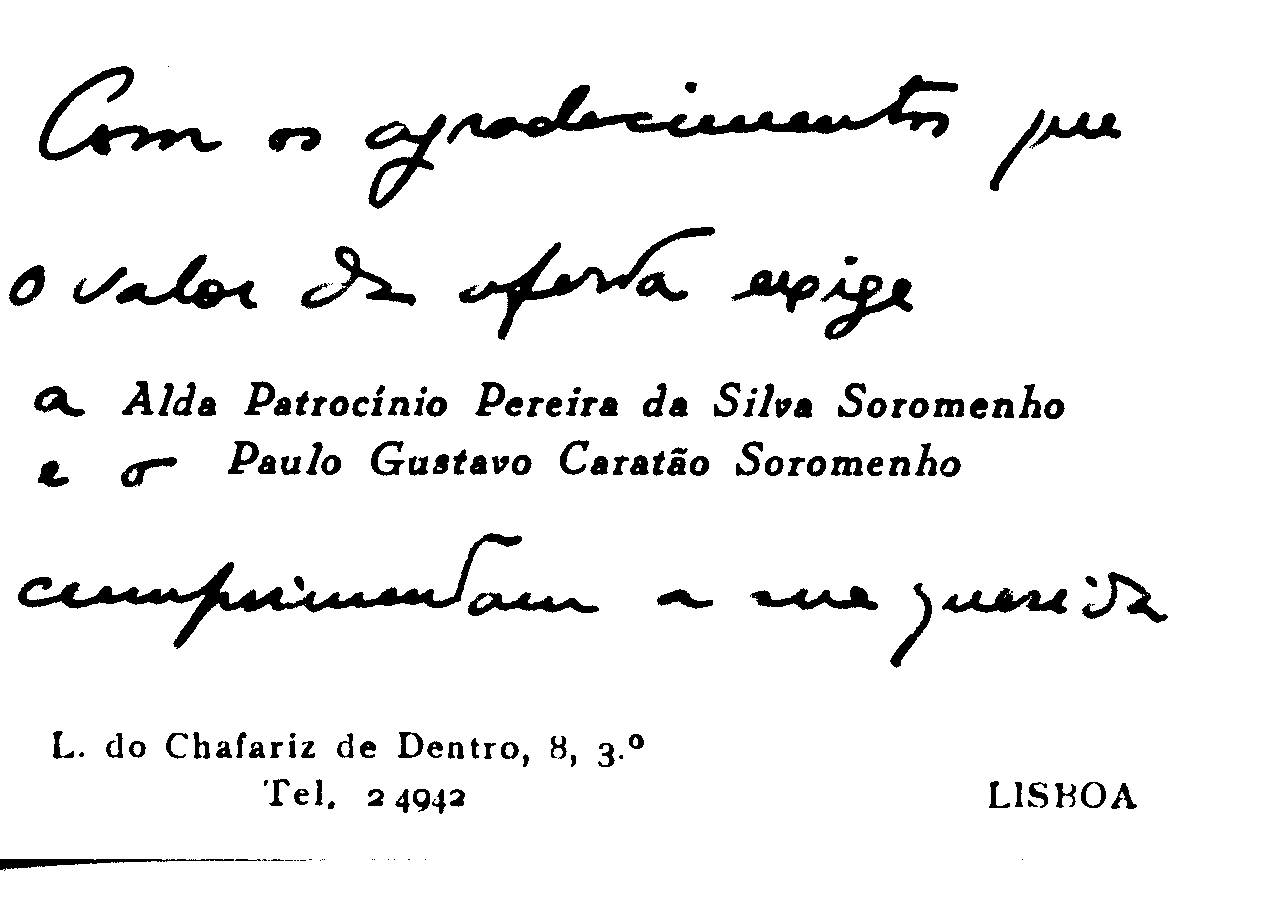 Com os agradecimentos que
o valor da oferta exige
a Alda Patrocínio Pereira da Silva Soromenho
e o Paulo Gustavo Caratão Soromenho
cumprimentam a sua querida
L. do Chafariz de Dentro, 8, 3.º
Tel. 24942 LISBOA